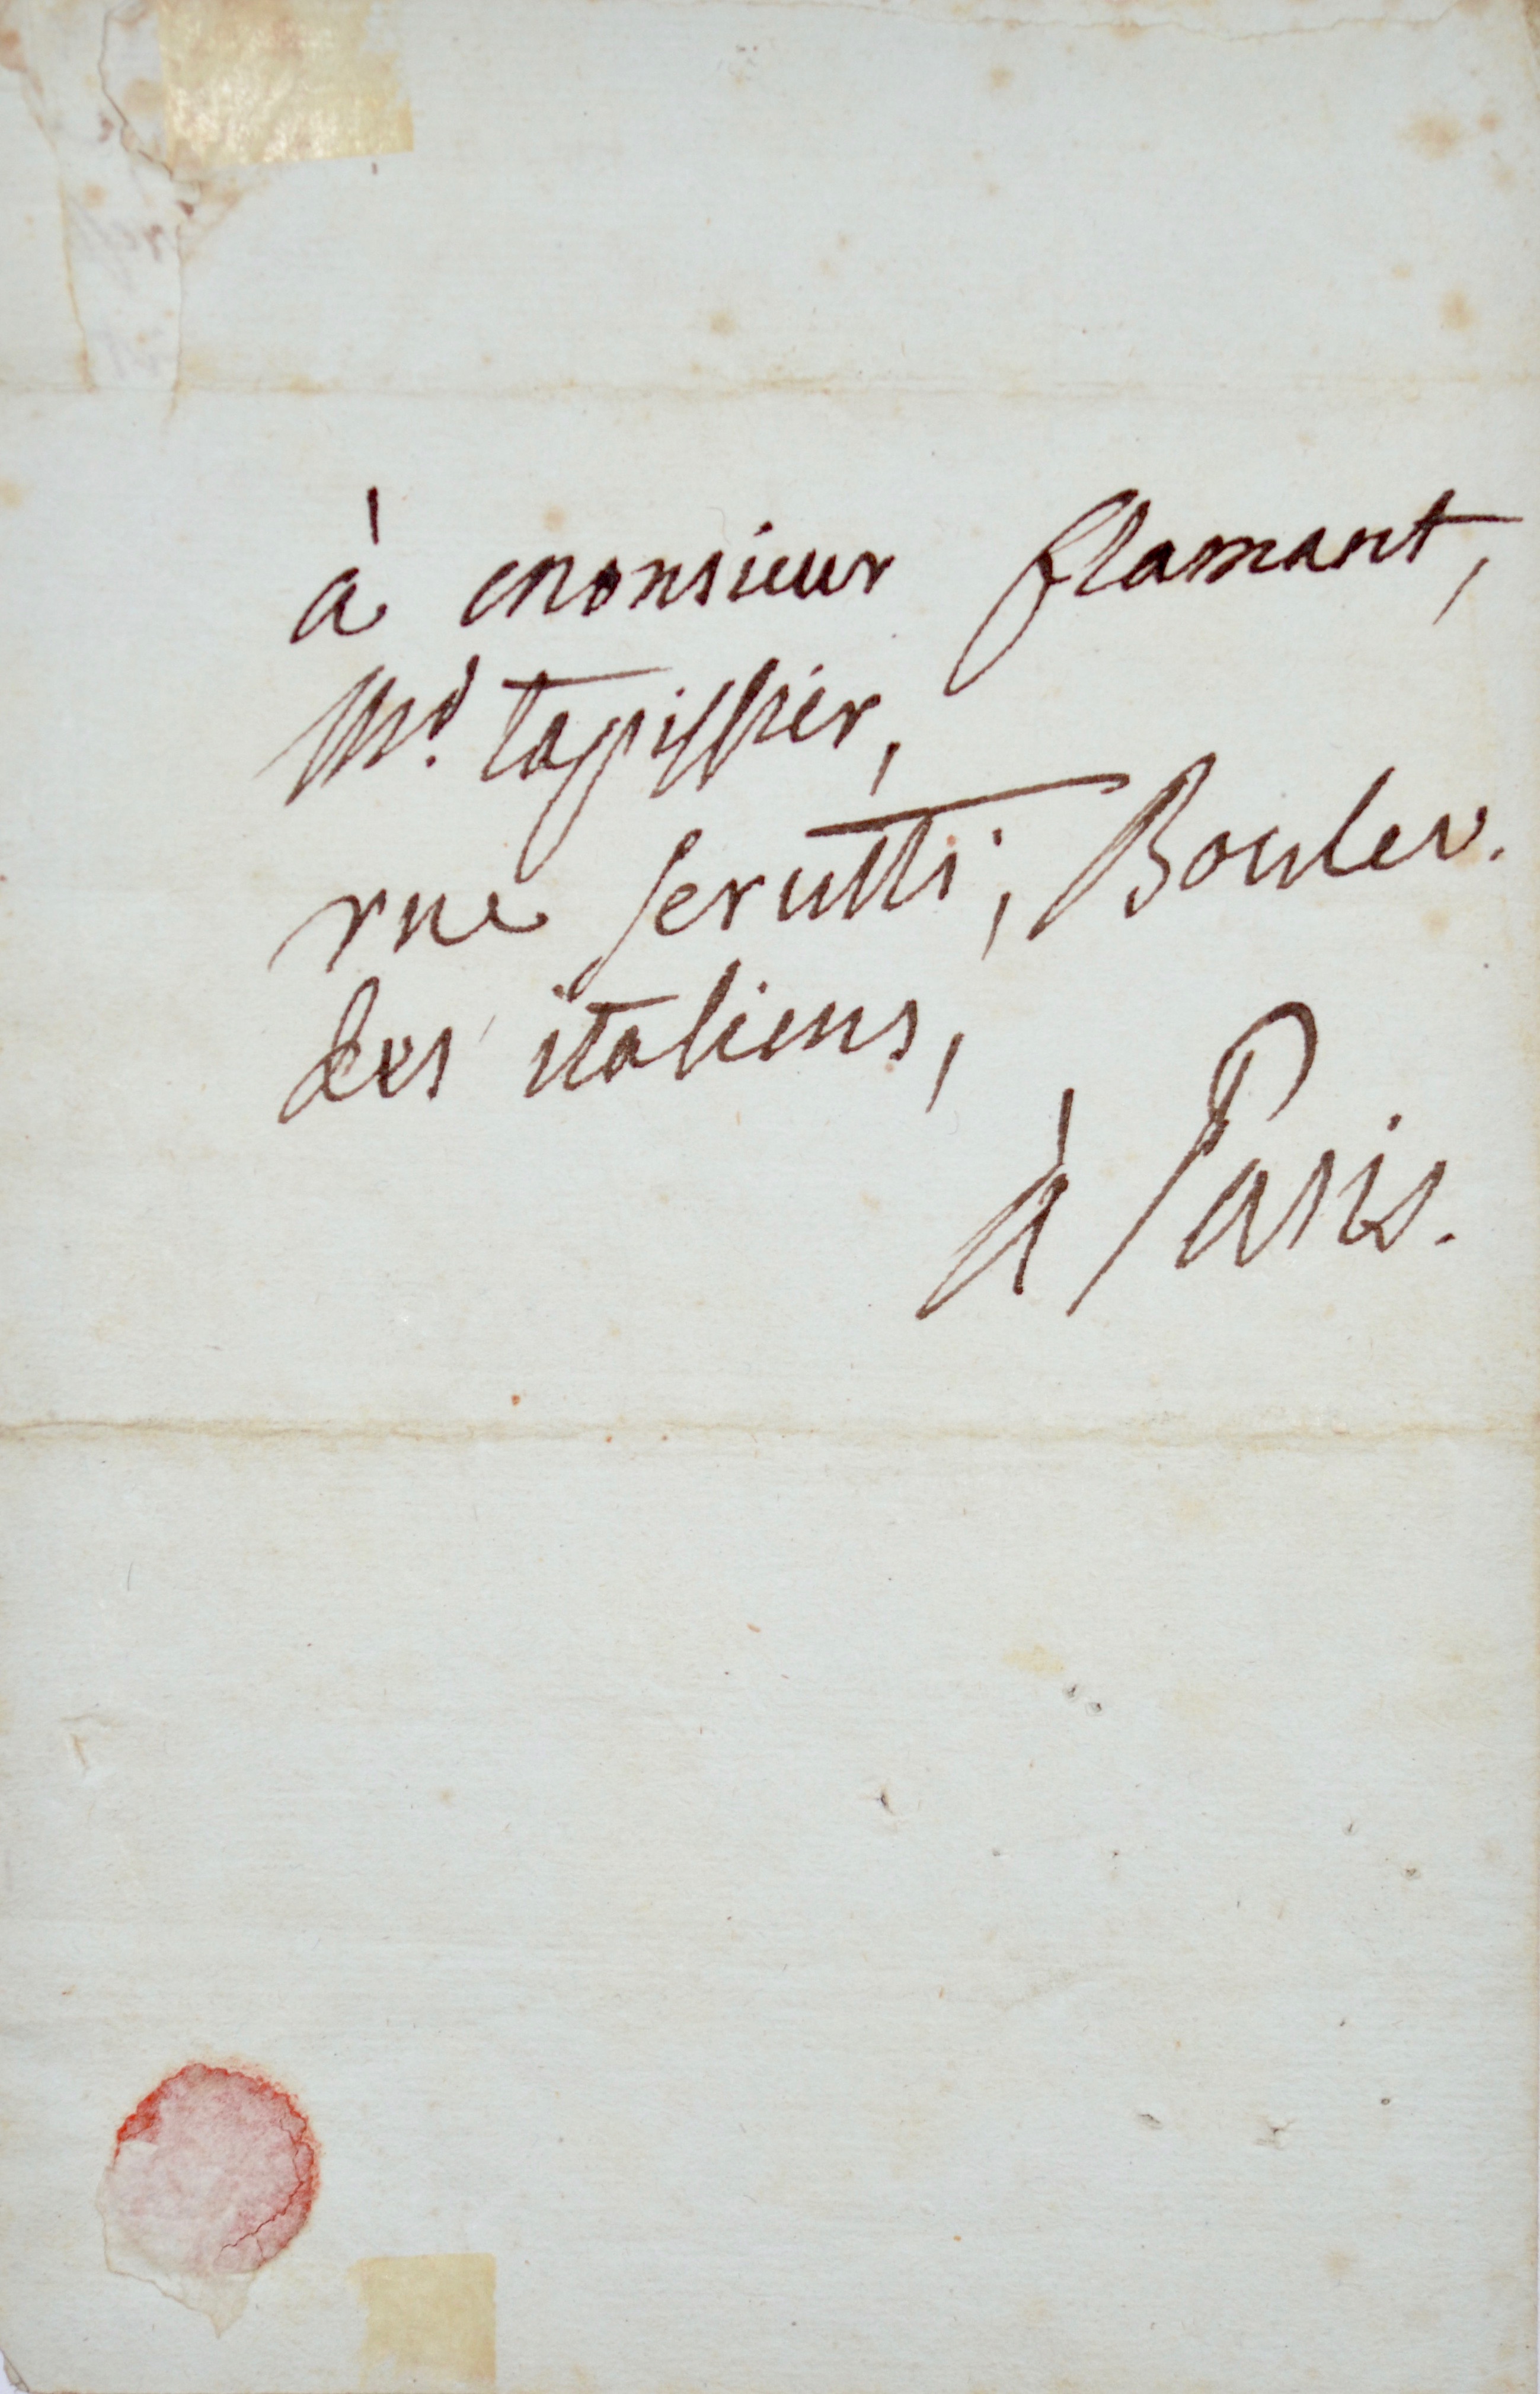 à monsieur flamant,
Md. tapissier,
rue serutti, Boulev.
des italiens,
à Paris.